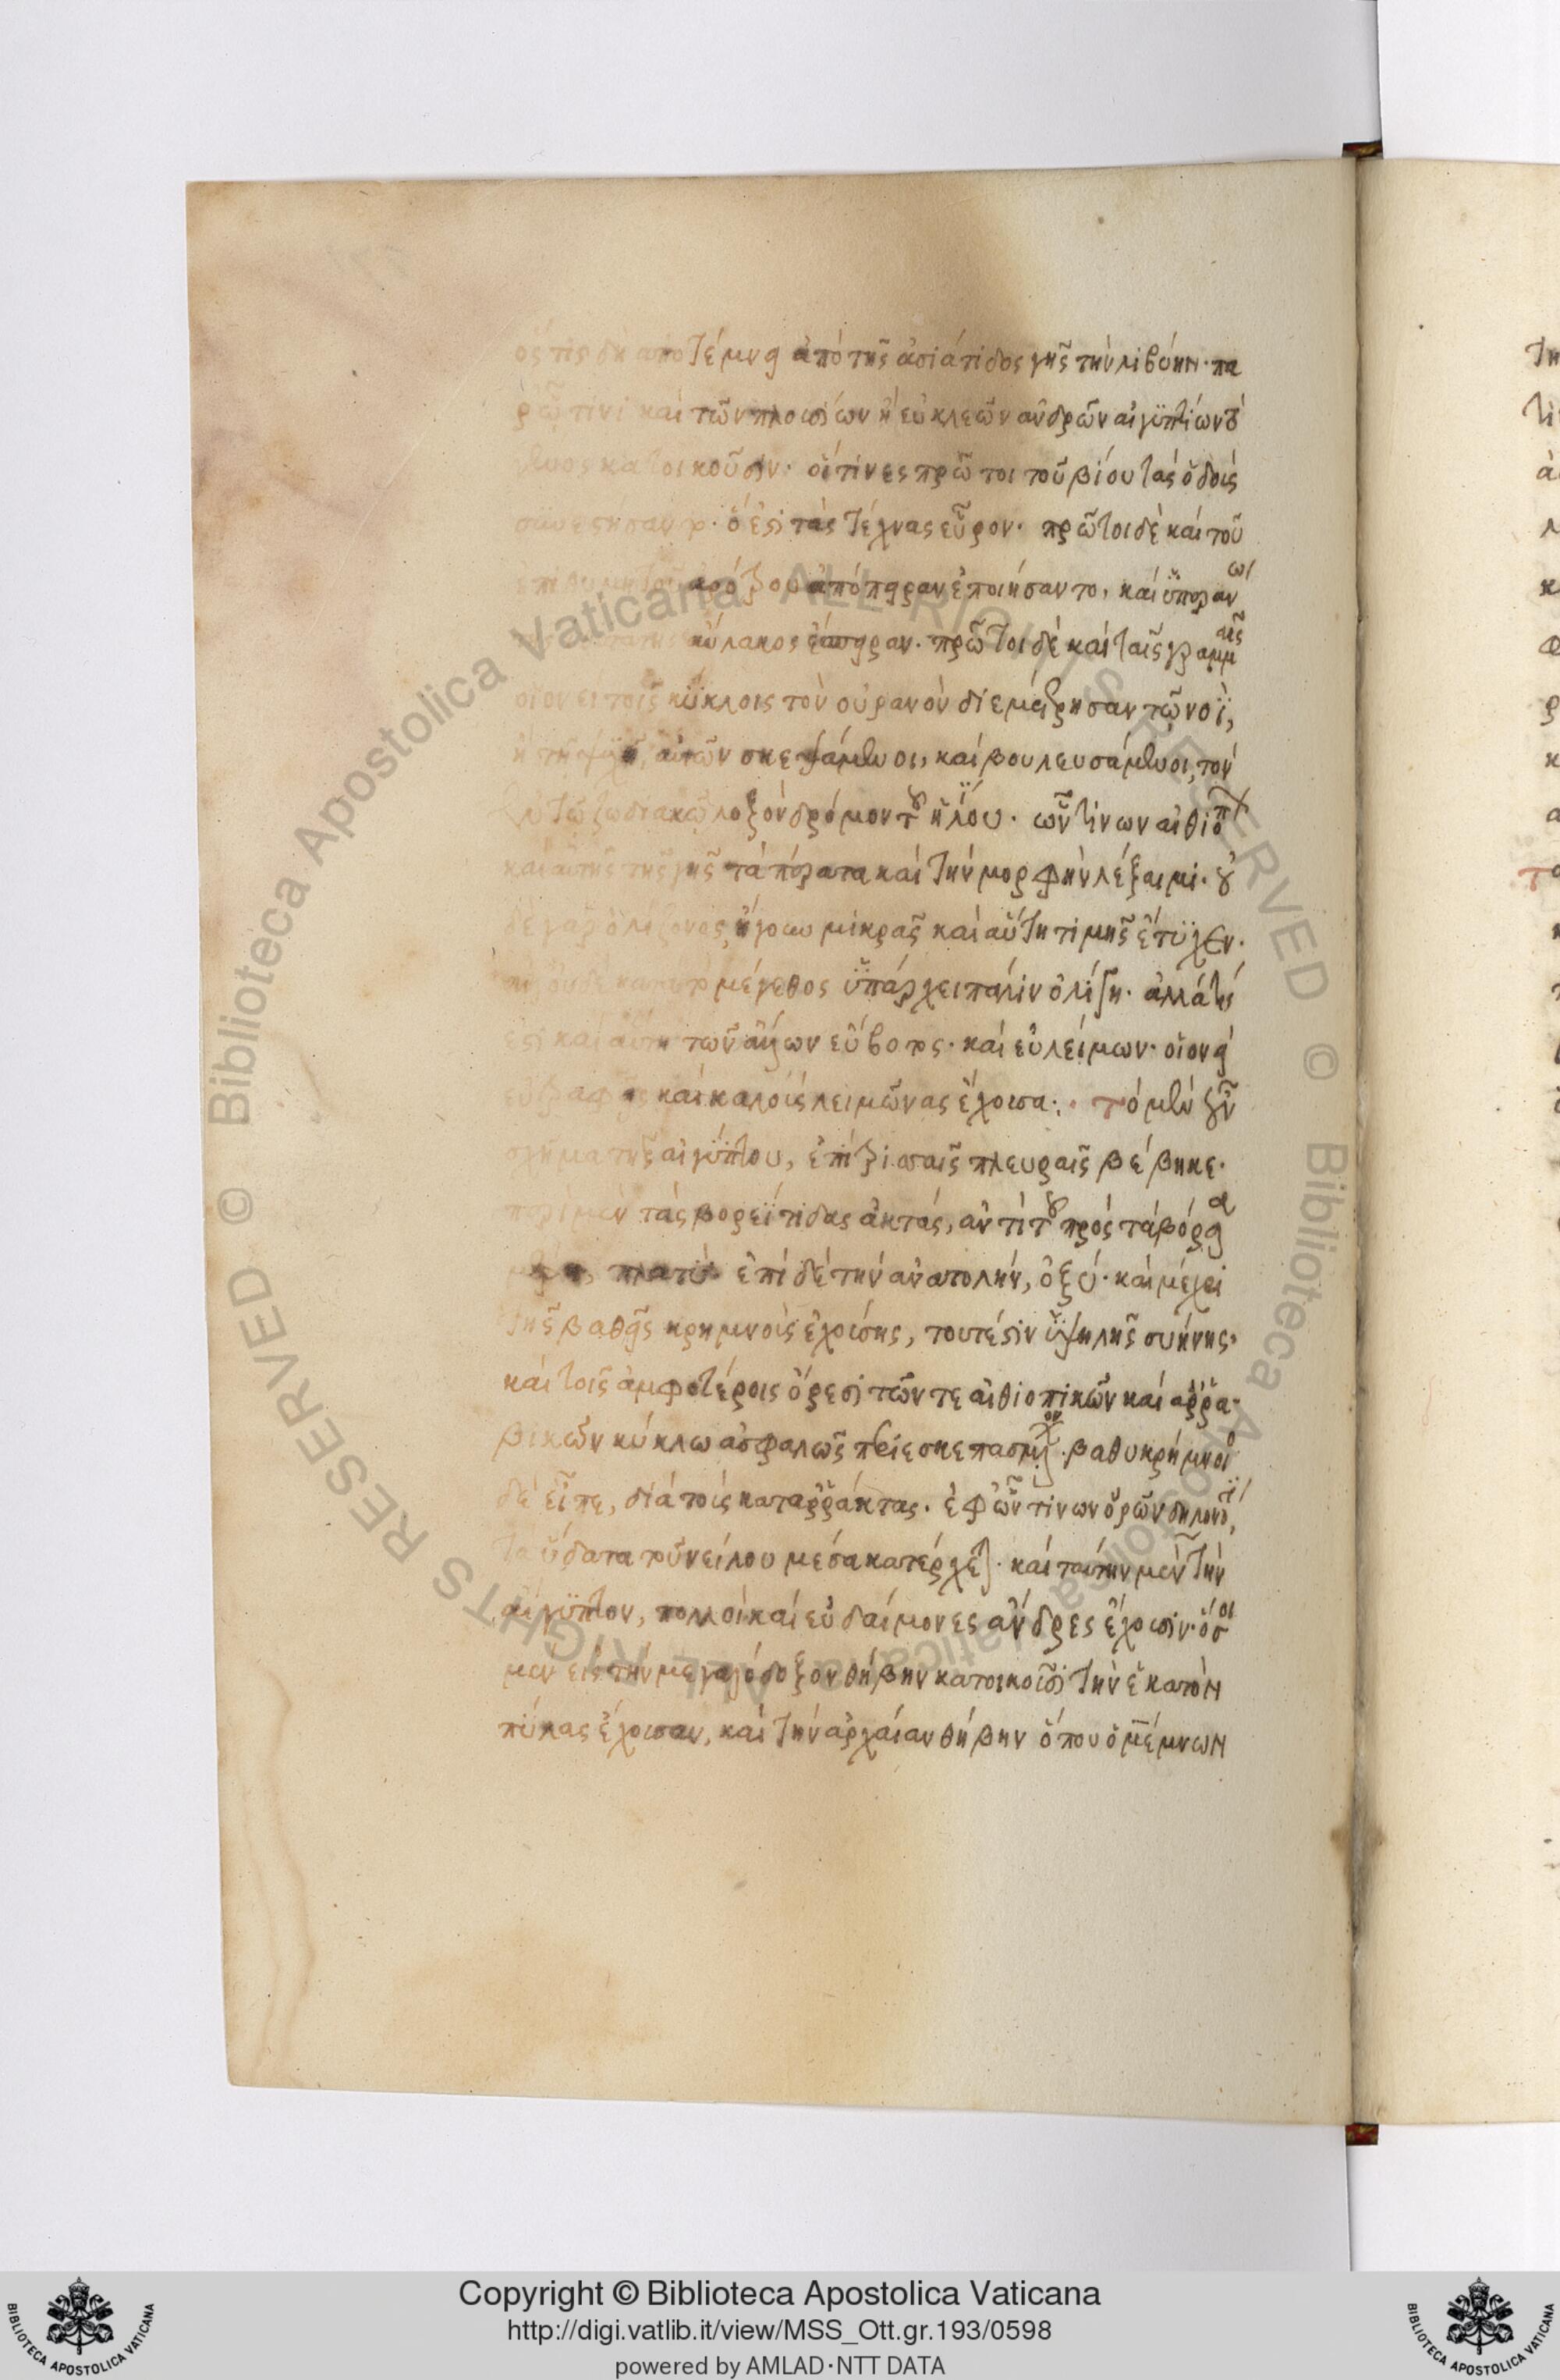 ὅς τις δὴ ἀποτέμνει ἀπὸ τῆς ἀσιάτιδος γῆς τὴν λιβύην· πα
ρ' ὧ τινι καὶ τῶν πλουσίων ἢ εὐκλεῶν ἀνδρῶν αἰγυπτίων τὸ
γένος κατοικοῦσιν· οἵτινες πρῶτοι τοῦ βίου τὰς ὁδοὺς
τὰς τέχνας εὗρον· πρῶτοι δὲ καὶ τοῦ
ἀρότρου ἀπόπειραν ἐποιήσαντο, καὶ
αὔλακος ἔσπειραν· πρῶτοι δὲ καὶ ταῖς γραμμαῖς
οἱονεὶ τοῖς κύκλοις τὸν οὐρανὸν διεμέτρησαν τῶ νοΐ,
ἢ τῆ ψυχῆ αὐτῶν σκεψάμενοι, καὶ βουλευσάμενοι, τὸν
ἐν τῶ ζωδιακῶ λοξὸν δρόμον τοῦ ἡλίου· ὧν τίνων
καὶ αὐτῆς τῆς γῆς τὰ πέρατα καὶ τὴν μορφὴν λέξαιμι· οὐ
δὲ γὰρ ὀλίζονος, ἤγουν μικρᾶς καὶ αὕτη τιμῆς ἔτυχεν·
οὐδὲ κατὰ τὸ μέγεθος ὑπάρχει πάλιν ὀλίγη· ἀλλά τίς
ἐστι καὶ αὕτη τῶν ἄλλων εὔβοτος· καὶ εὐλείμων· οἱονεὶ
εὔτραφος καὶ καλοὺς λειμῶνας ἔχουσα· τὸ μὲν οὖν
σχῆμα τῆς αἰγύπτου, ἐπὶ τρισσαῖς πλευραῖς βέβηκε·
περὶ μὲν τὰς βορείτιδας ἀκτάς, ἀντὶ τοῦ πρὸς τὰ βόρεια
μέρη, πλατύ· ἐπὶ δὲ τὴν ἀνατολήν, ὀξύ· καὶ μέχρι
τῆς βαθεῖς κρημνοὺς ἐχούσης, τουτέστιν ὑψηλῆς συήνης·
καὶ τοῖς ἀμφοτέροις ὄρεσι τῶν τε αἰθιοπικῶν καὶ ἀῤῥα-
βικῶν κύκλω ἀσφαλῶς βαθυκρήμνου
δὲ εἶπε, διὰ τοὺς καταῤῥάκτας· ἐφ' ὧν τίνων ὀρῶν δηλονότι,
τὰ ὕδατα τοῦ νείλου μέσα κατέρχεται· καὶ ταύτην μὲν τὴν
αἴγυπτον, πολλοὶ καὶ εὐδαίμονες ἄνδρες ἔχουσιν· ὅσοι
μὲν εἰς τὴν μεγαλόδοξον θήβην κατοικοῦσι τὴν ἑκατὸν
πύλας ἔχουσαν, καὶ τὴν ἀρχαίαν θήβην ὅπου ὁ μέμνων
Copyright © Biblioteca Apostolica Vaticana
http://digi.vatlib.it/view/MSS_Ott.gr.193/0598
powered by AMLAD·NTT DATA